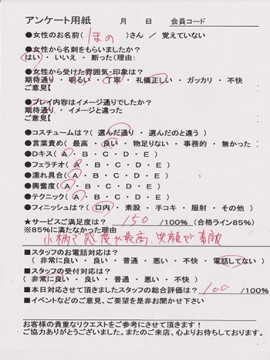 アンケート用紙　　月　　日　会員コード
●女性のお名前( まの )さん ／ 覚えていない
●女性から名刺をもらいましたか?
はい ・ いいえ ・ 断った(理由:
●女性から受けた雰囲気・印象は?
期待通り ・ 明るい ・ 丁寧 ・ 礼儀正しい ・ ガッカリ ・ 不快
ご意見【
●プレイ内容はイメージ通りでしたか?
期待通り ・ イメージと違った
ご意見【
●コスチュームは?( 選んだ通り ・ 選んだのと違う )
●言葉責め( 最高 ・ 良い ・ 物足りない ・ 事務的 ・ 無かった
●Dキス( A ・ B ・ C ・ D ・ E )
●フェラチオ( A ・ B ・ C ・ D ・ E )
●濡れ具合( A ・ B ・ C ・ D ・ E )
●興奮度( A ・ B ・ C ・ D ・ E )
●テクニック( A ・ B ・ C ・ D ・ E )
●フィニッシュは?( 口内 ・ 素股 ・ 手コキ ・ 服射 ・ その他 )
★サービスご満足度は? 150 /100% (合格ライン85%)
※85%に満たなかった理由
小柄で感度が最高 笑顔が素敵
■スタッフのお電話対応は?
( 非常に良い ・ 良い ・ 普通 ・ 悪い ・ 不快 ・ 電話してない )
■スタッフの受付対応は?
( 非常に良い ・ 良い ・ 普通 ・ 悪い ・ 不快 )
■本日対応させて頂きましたスタッフの総合評価は? 100 /100%
■イベントなどのご意見、ご要望を是非お聞かせ下さい
お客様の貴重なリクエストをご参考にさせて頂きます!
ご協力ありがとうございました。またのご来店、心よりお待ちしております。